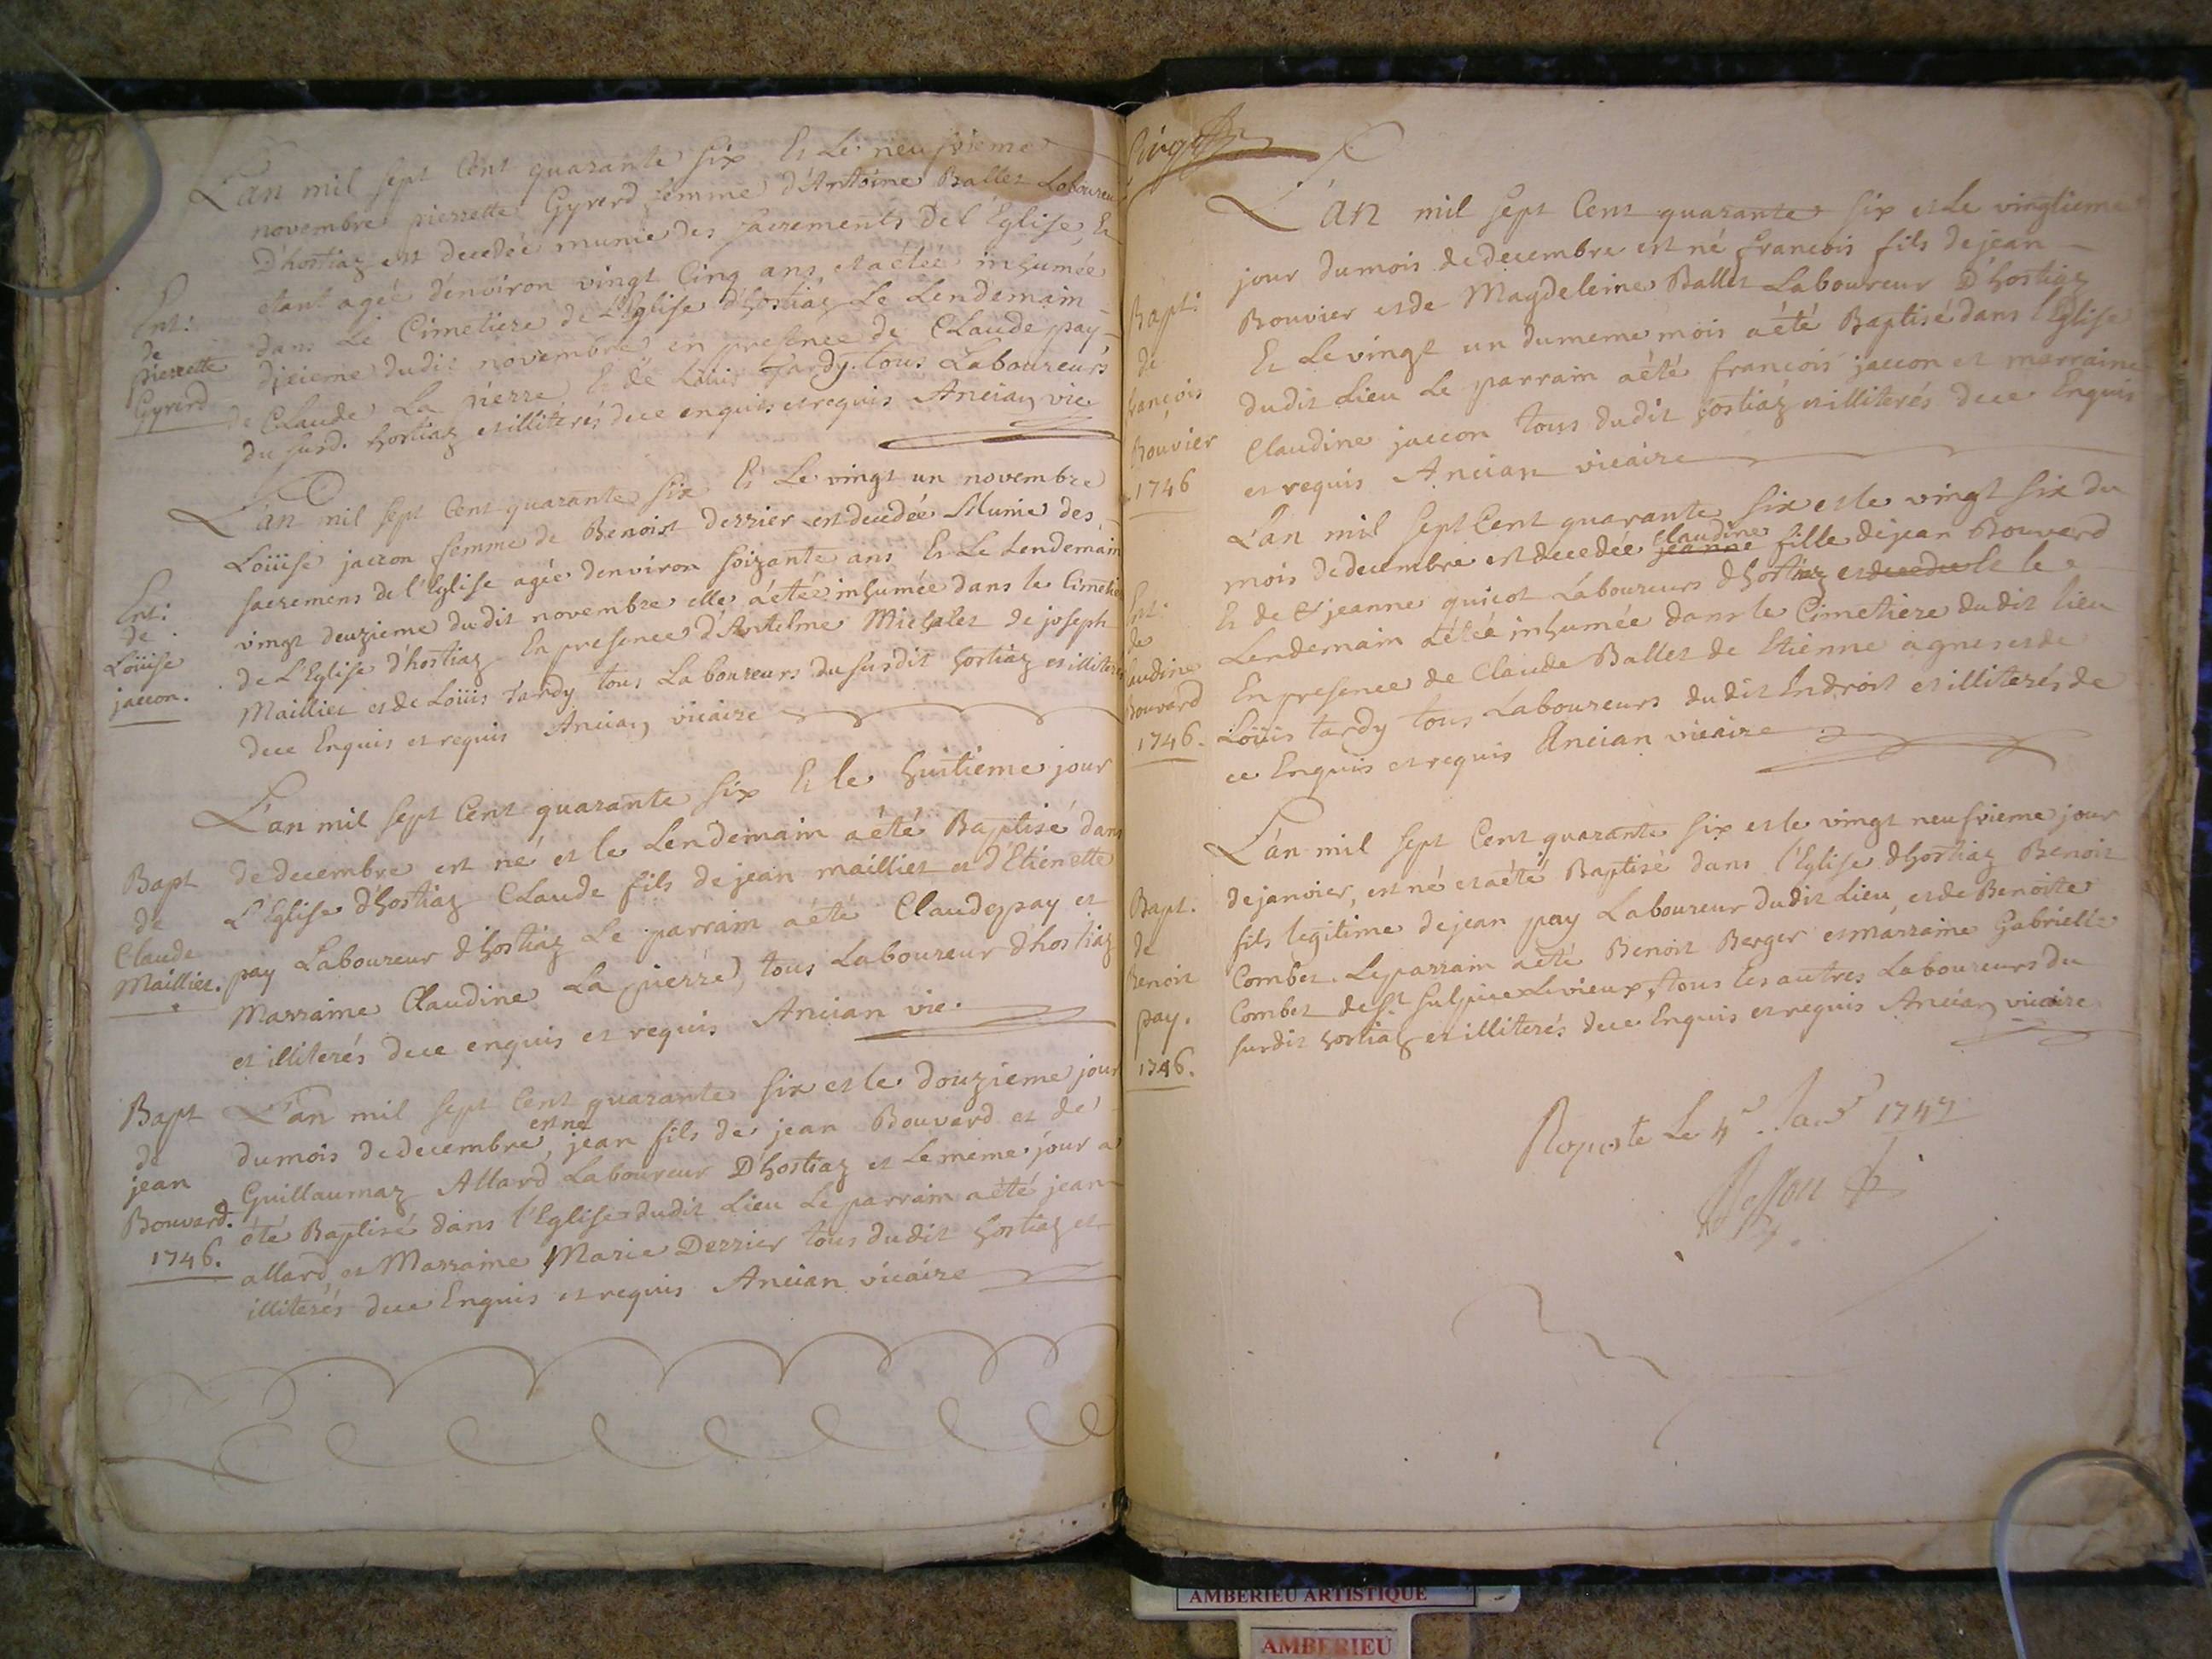 L'an mil sept Cent quarante six Et Le neufvieme
novembre pierrette Gyrerd femme d'Antoine Ballet Laboureur
D'hostiaz est decedée munie des sacrements De l'Eglise, Et
etant agée d'environ vingt Cinq ans, et a étée inhumée
dans Le Cimetiere de L'Eglise d'hostiaz Le Lendemain
dixieme dudit novembre en presence de Claude pay
de Claude La pierre Et de Louis Tardy tous Laboureurs
du surd. hostiaz et illiterés de ce enquis et requis Ancian vic.
Ent:
de
pierrette
Gyrerd
L'an mil sept Cent quarante six Et Le vingt un novembre
Loüise jaccon femme de Benoist derrier est decedée Munie des
sacremens de l'Eglise agée d'environ soixante ans Et Le Lendemain
vingt deuzieme dudit novembre elle a étée inhumée dans le Cimetiere
de L'Eglise d'hostiaz En presence d'Antelme Michalet de joseph
Mailliet et de Loüis tardy tous Laboureurs du susdit hostiaz et illiterés
de ce Enquis et requis Ancian vicaire
Ent:
de
Loüise
jaccon.
L'an mil sept Cent quarante six Et le huitieme jour
de decembre est né et le Lendemain a été Baptisé dans
L'Eglise d'hostiaz Claude fils de jean mailliet et d'Etienette
pay Laboureur d'hostiaz Le parrain a été Claude pay et
Marraine Claudine La pierre, tous Laboureur d'hostiaz
et illiterés de ce enquis et requis Ancian vic.
Bapt
de
Claude
Mailliet.
L'an mil sept Cent quarante six et le douzieme jour
du mois de decembre, est né jean fils de jean Bouvard et de
Guillaumaz Allard Laboureur D'hostiaz et Le meme jour a
été Baptisé dans l'Eglise dudit Lieu Le parrain a été jean
allard, et Marraine Marie Derrier tous dudit hostiaz et
illiterés de ce Enquis et requis Ancian vicaire
Bapt
de
jean
Bouvard.
1746.
L'an mil sept Cent quarante six et Le vingtieme
jour du mois de decembre est né francois fils de jean
Bouvier et de Magdeleine Ballet Laboureur D'hostiaz
Et Le vingt un du meme mois a été Baptisé dans l'Eglise
dudit Lieu Le parrain a été francois jaccon et marraine
Claudine jaccon tous dudit hostiaz et illiterés de ce Enquis
et requis Ancian vicaire
Bapt:
de
françois
Bouvier
1746
L'an mil sept Cent quarante six et le vingt six du
mois de decembre est decedée jeanne claudine fille de jean Bouvard
Et de jeanne quicot Laboureurs d'hostiaz et decedee et le
Lendemain a étée inhumée dans le Cimetiere du dit lieu
En presence de Claude Ballet de Etienne agneret de
Loüis tardy tous Laboureurs du dit Endroit et illiterés de
ce Enquis et requis Ancian vicaire
Ent.
de
Claudine
Bouvard
1746.
L'an mil sept Cent quarante six et le vingt neufvieme jour
de janvier, est né et a été Baptisé dans l'Eglise d'hostiaz Benoit
fils legitime de jean pay Laboureur dudit Lieu, et de Benoite
Combet. Le parrain a été Benoit Berger et marraine Gabrielle
Combet de St. Sulpice Le vieux, tous les autres Laboureurs du
surdit hostiaz et illiterés de ce Enquis et requis Ancian vicaire
Bapt.
de
Benoit
pay.
1746.
Reporté Le 4e Janr 1747
AMBERIEU ARTISTIQUE
AMBERIEU